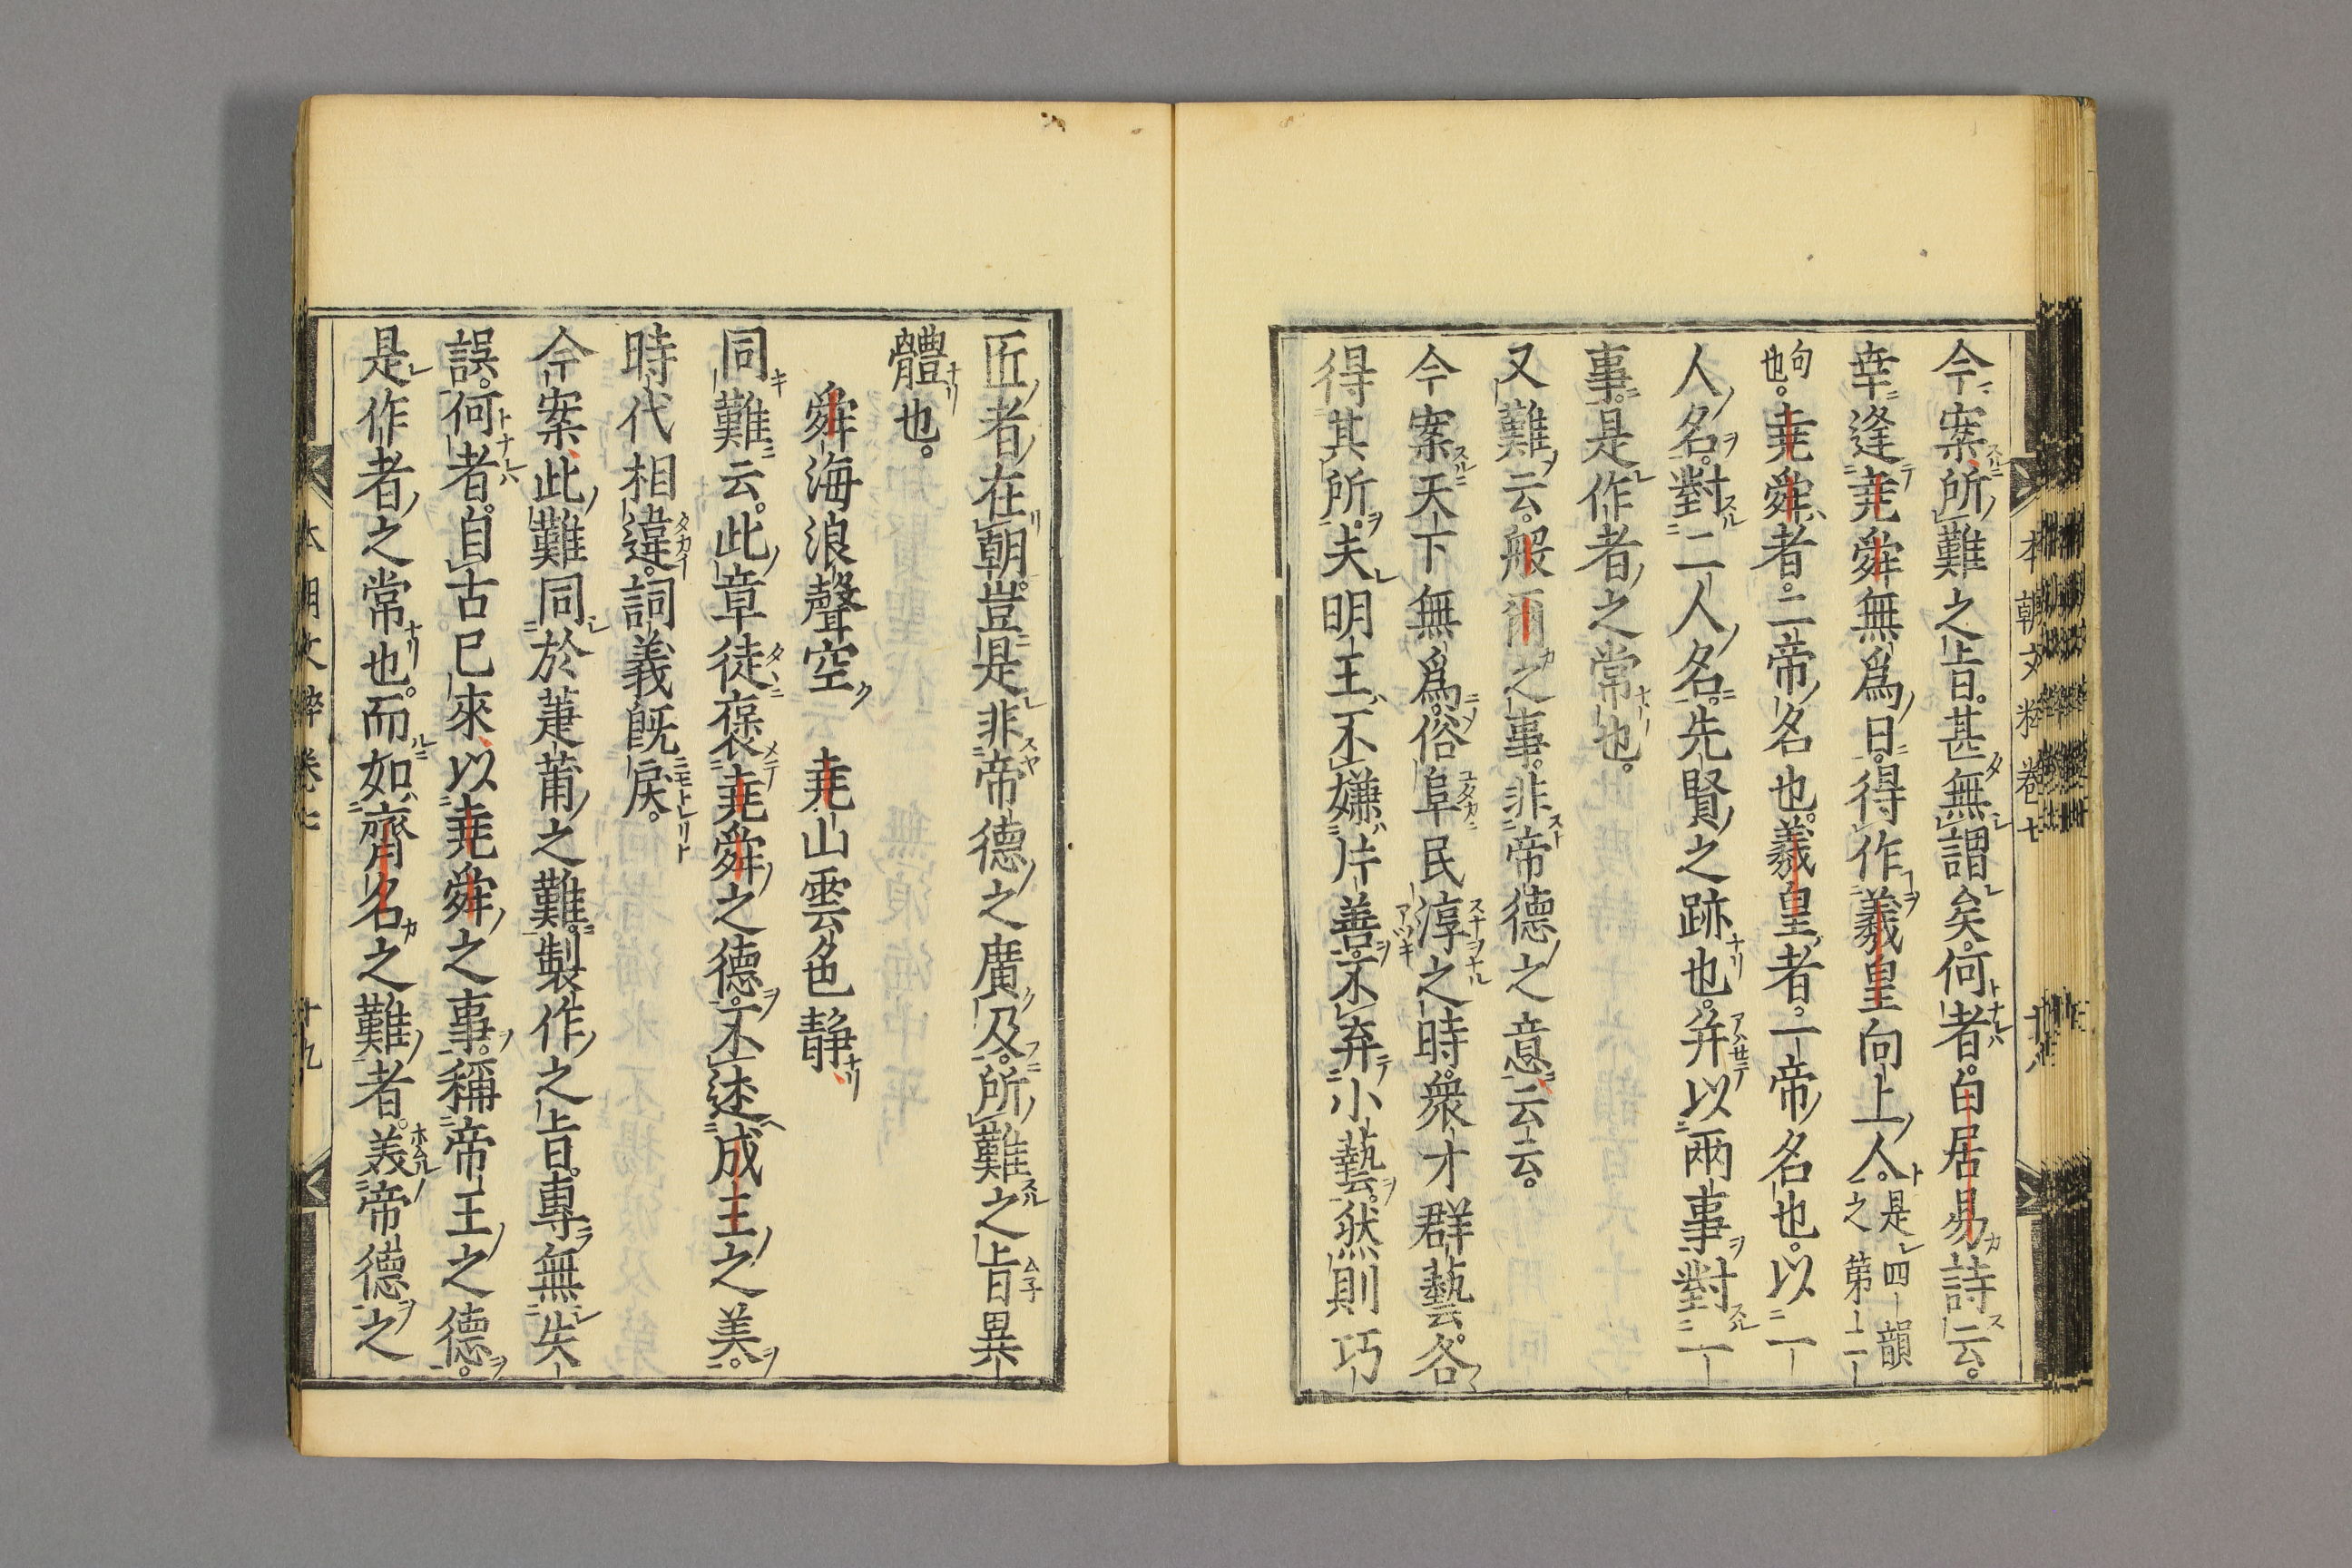 今案所難之旨。甚無謂矣。何者。白居易詩云。
幸逢堯舜無爲日。得作羲皇向上人。是四韻之第一二
句也。堯舜者。二帝名也。羲皇者。一帝名也。以一
人名。對二人名。先賢之跡也。幷以兩事對一
事。是作者之常也。
又難云。般爾之事。非帝德之意云云。
今案天下無爲。俗阜民淳之時。衆才群藝。各
得其所。夫明王不嫌片善。不弃小藝。然則巧
本朝文粹卷七
匠者在朝。豈是非帝德之廣及。所難之旨異
體也。
舜海浪聲空 堯山雲色静
同難云。此章徒褒堯舜之德。不述成王之美。
時代相違。詞義旣戾。
今案此難同於萐莆之難。製作之旨。專無失
誤。何者。自古已來以堯舜之事。稱帝王之德。
是作者之常也。而如齊名之難者。美帝德之
本朝文粹卷七 十九